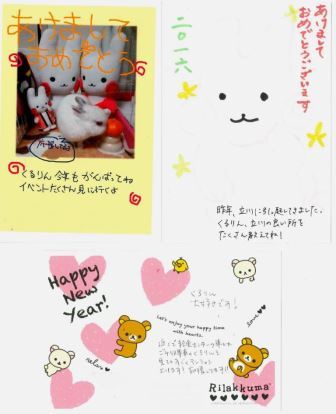 あけまして
おめでとう
くるりん 今年も がんばってね
イベントたくさん見に行くよ
あけまして
おめでとうございます
二〇一六
昨年、立川に引っ越してきました。
くるりん、立川の良い所を
たくさん教えてね!
Happy
New
Year!
くるりん
大好きです!
Let's enjoy your happy time
with hearts.
relax
love
Rilakkuma